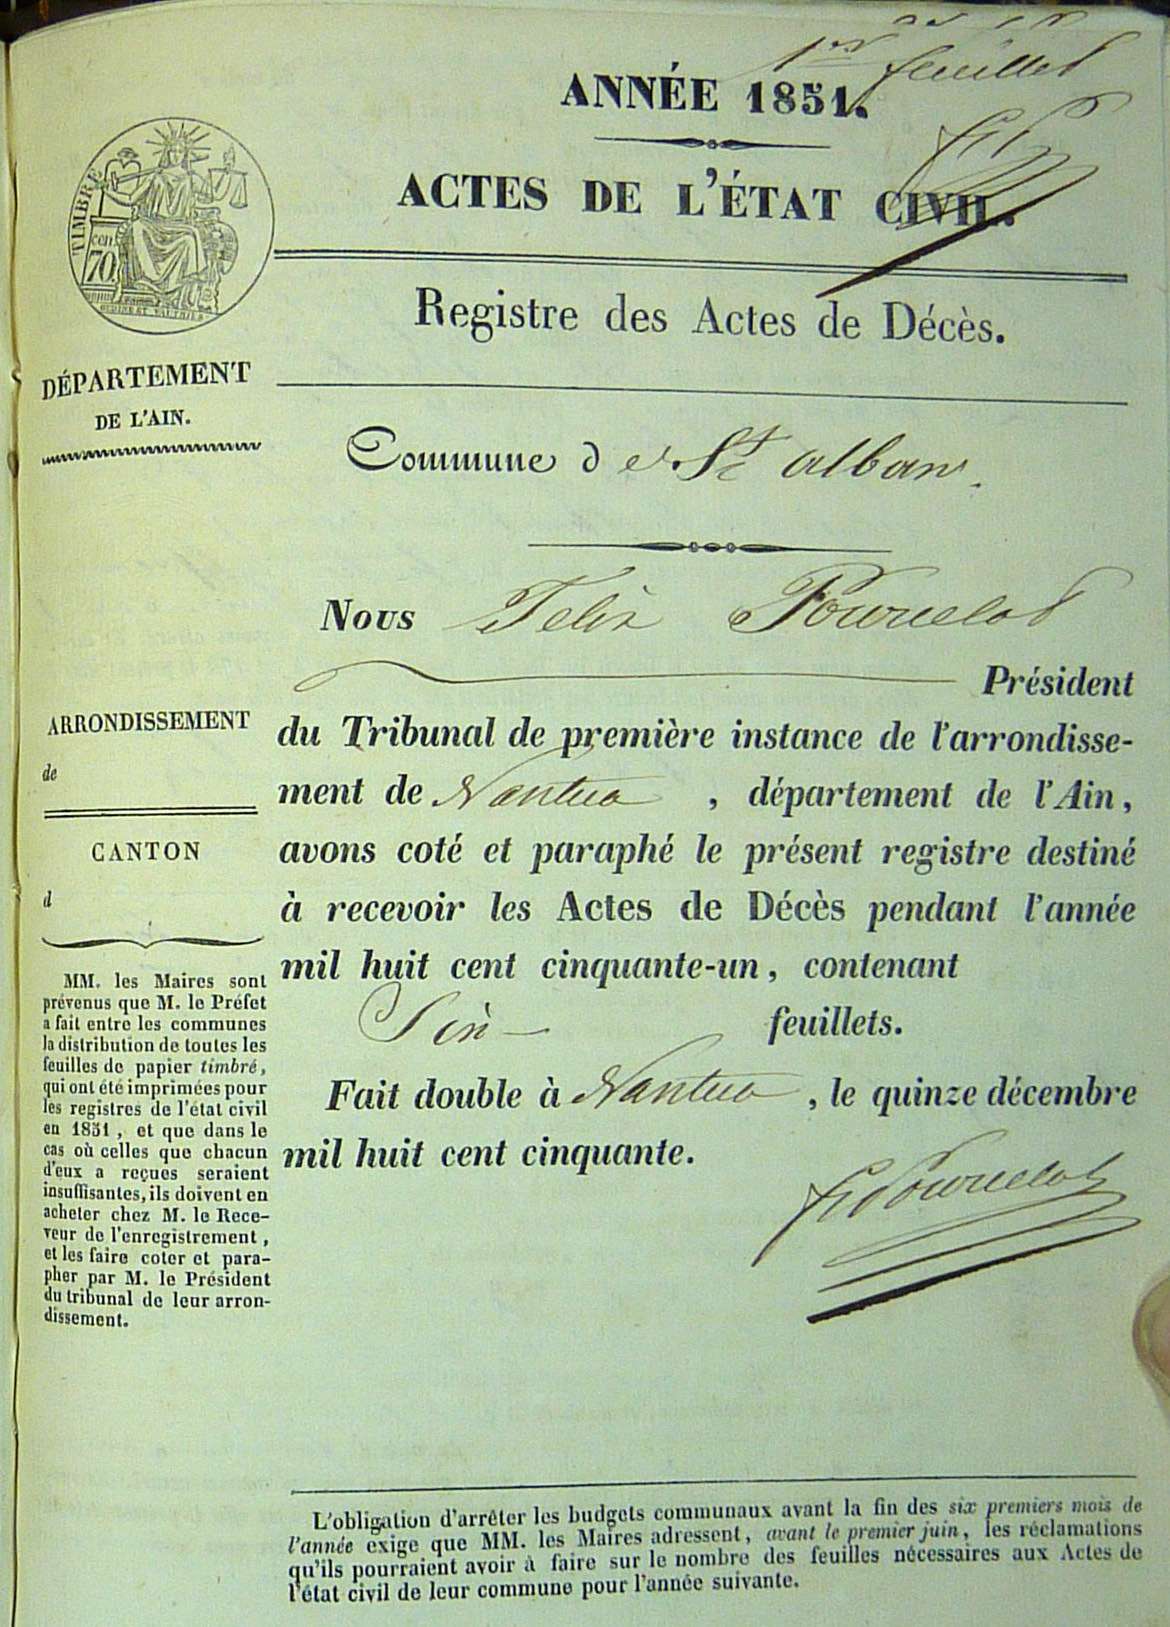 1er feuillet
ANNÉE 1851.
ACTES DE L'ÉTAT CIVIL.
TIMBRE
cen
70
Registre des Actes de Décès.
DÉPARTEMENT
DE L'AIN.
Commune de St alban.
Nous Felix Fournelot
Président
du Tribunal de première instance de l'arrondisse-
ment de Nantua, département de l'Ain,
avons coté et paraphé le présent registre destiné
à recevoir les Actes de Décès pendant l'année
mil huit cent cinquante-un, contenant
Six feuillets.
Fait double à Nantua, le quinze décembre
mil huit cent cinquante.
ARRONDISSEMENT
de
CANTON
d
MM. les Maires sont
prévenus que M. le Préfet
a fait entre les communes
la distribution de toutes les
feuilles de papier timbré,
qui ont été imprimées pour
les registres de l'état civil
en 1851, et que dans le
cas où celles que chacun
d'eux a reçues seraient
insuffisantes, ils doivent en
acheter chez M. le Rece-
veur de l'enregistrement,
et les faire coter et para-
pher par M. le Président
du tribunal de leur arron-
dissement.
L'obligation d'arrêter les budgets communaux avant la fin des six premiers mois de
l'année exige que MM. les Maires adressent, avant le premier juin, les réclamations
qu'ils pourraient avoir à faire sur le nombre des feuilles nécessaires aux Actes de
l'état civil de leur commune pour l'année suivante.